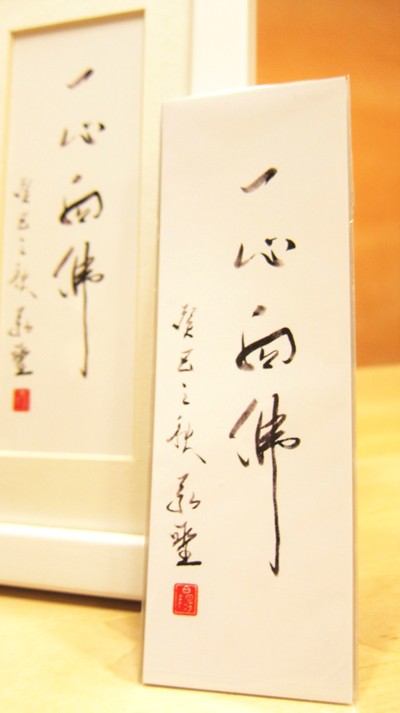 一心向佛
癸巳之秋
一心向佛
癸巳之秋